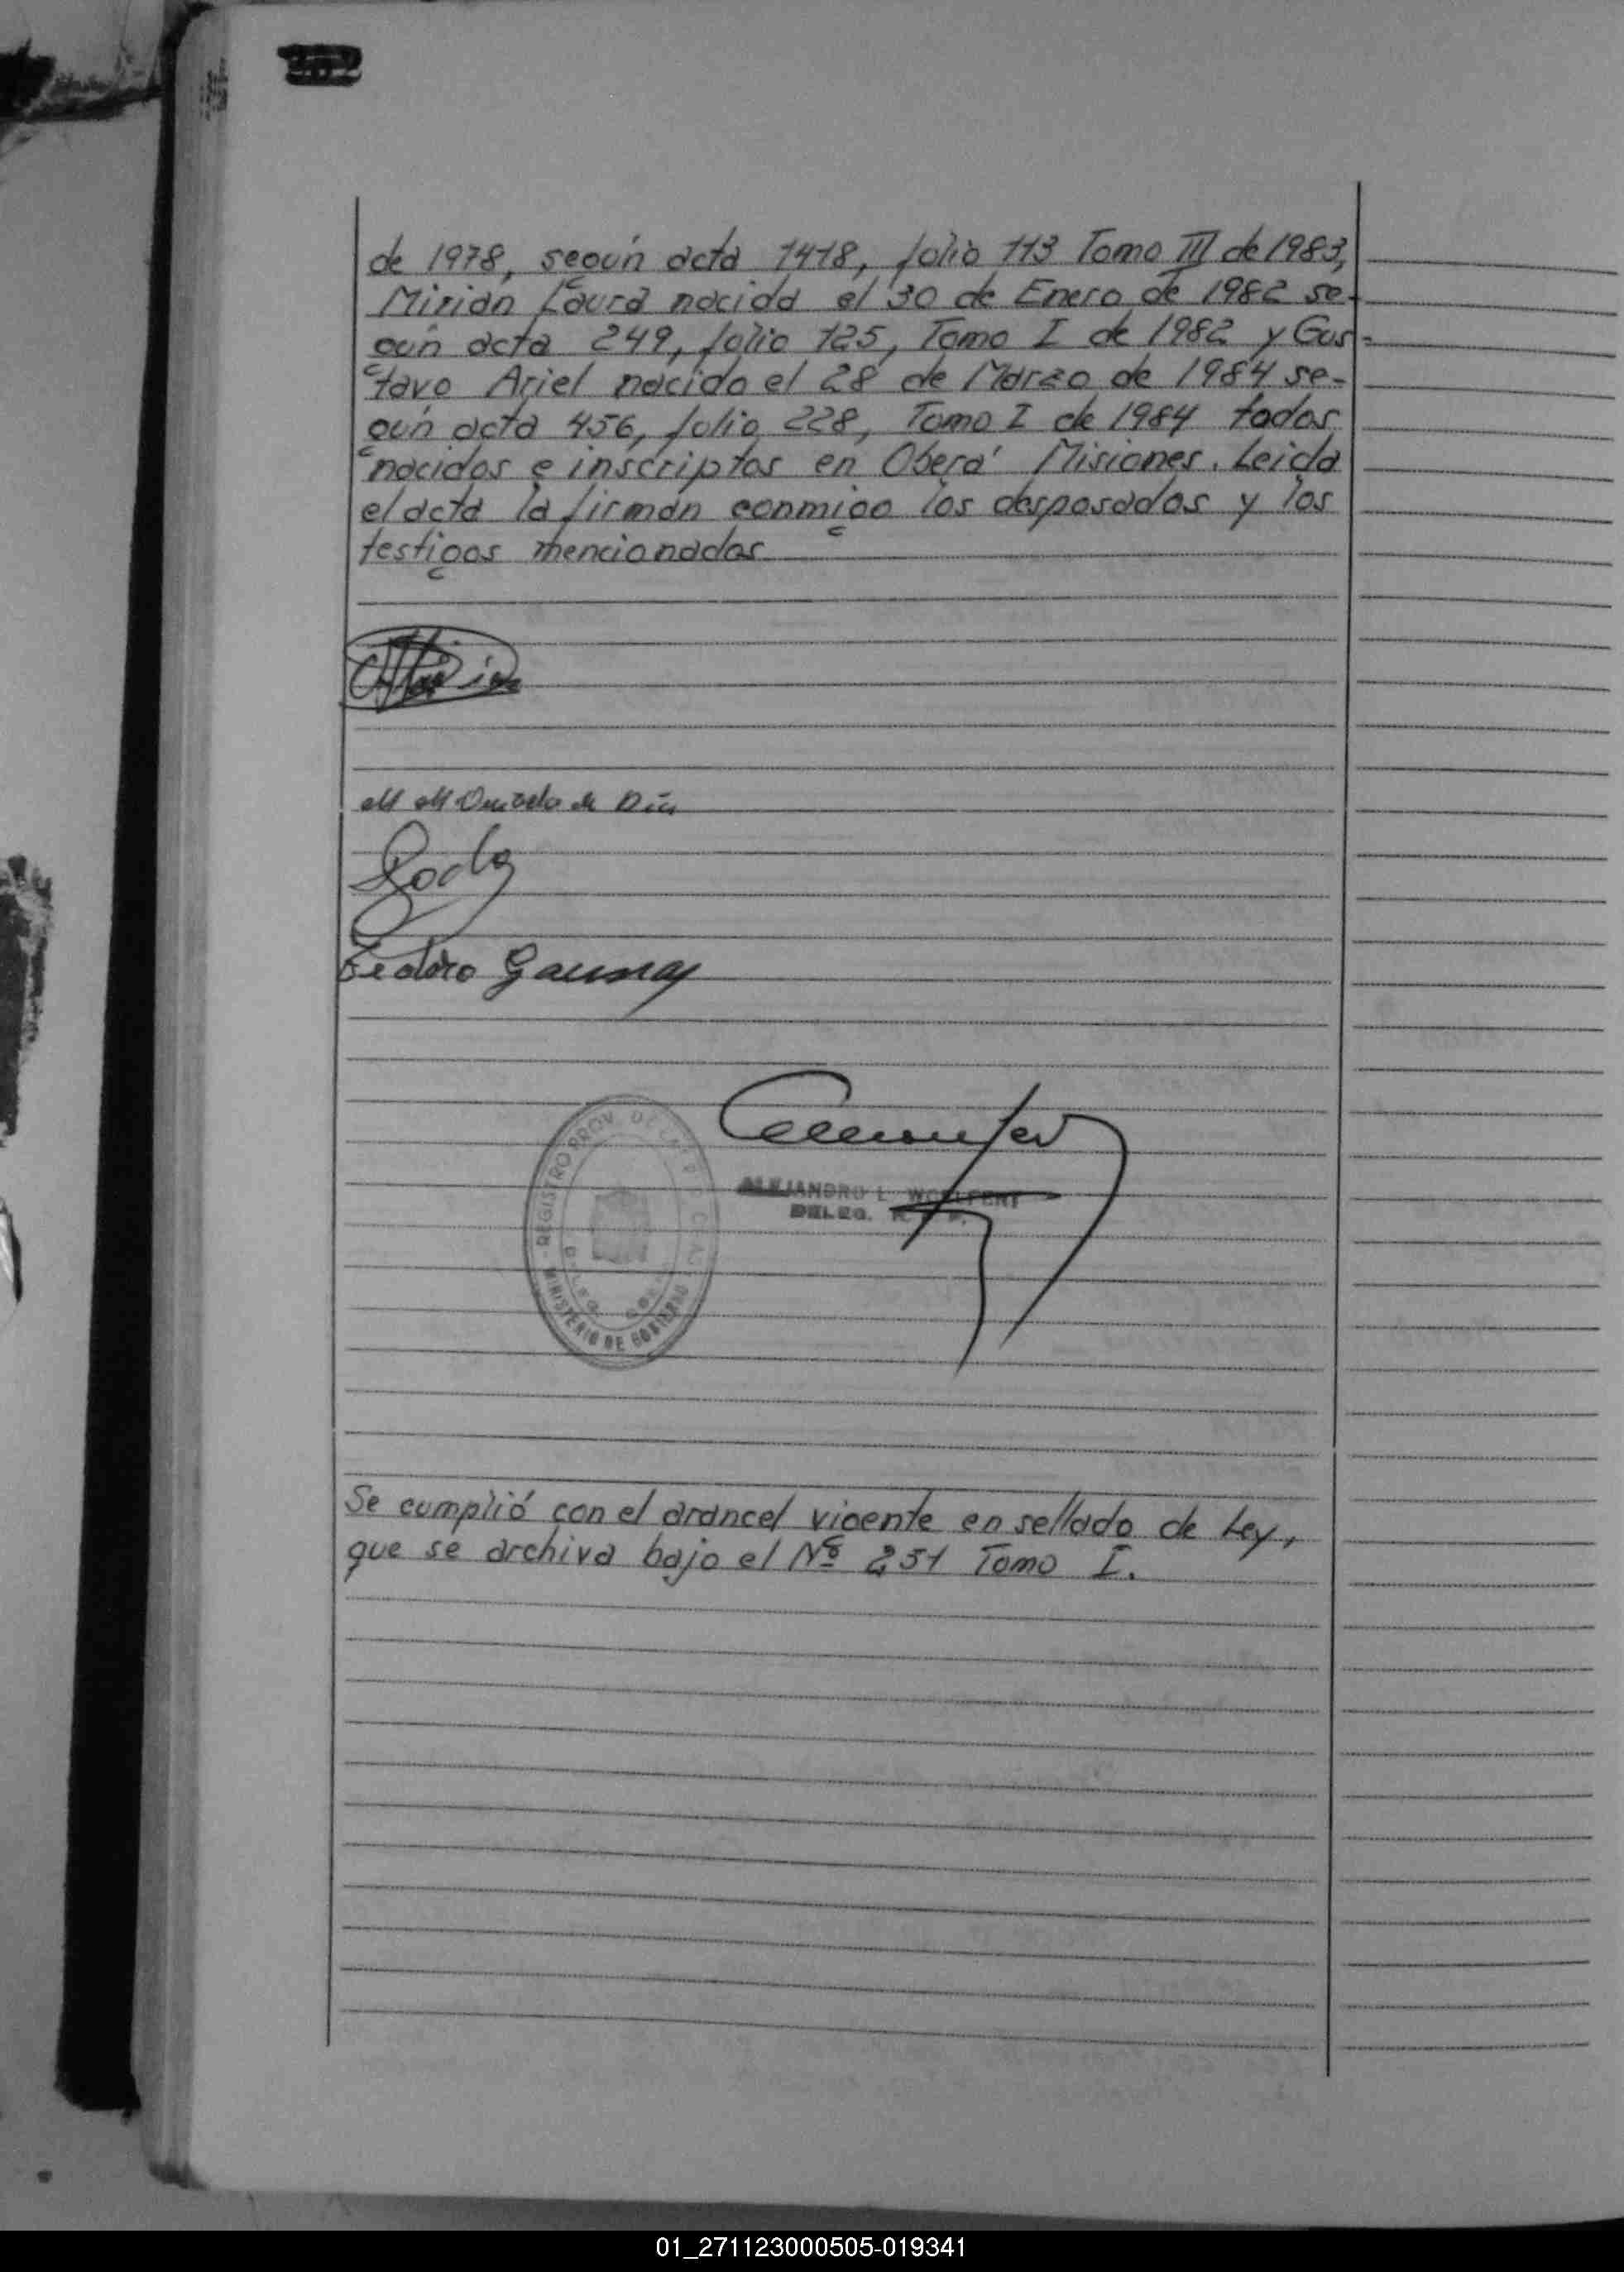 de 1978, según acta 1418, folio 113 Tomo III de 1983,
Mirian Laura nacida el 30 de Enero de 1982 se-
gún acta 249, folio 125, Tomo I de 1982 y Gus-
tavo Ariel nacido el 28 de Marzo de 1984 se-
gún acta 456, folio 228, Tomo I de 1984 todos
nacidos e inscriptos en Oberá Misiones. Leida
el acta la firman conmigo los desposados y los
testigos mencionados
de
Gauna
REGISTRO PROV. DE LAS
MINISTERIO DE GOBIERNO
ALEJANDRO L. WOELFERT
DELEG.
Se cumplió con el arancel vigente en sellado de Ley,
que se archiva bajo el Nº 251 Tomo I.
01_271123000505-019341